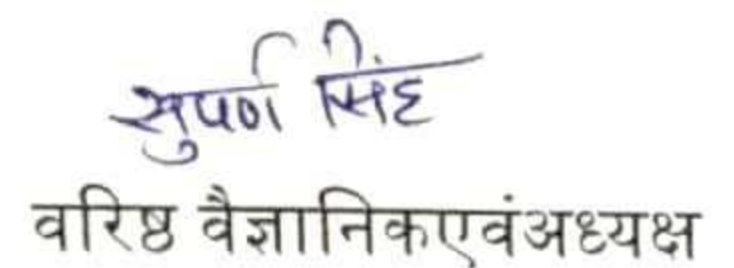 सुपर्ण सिंह
वरिष्ठ वैज्ञानिकएवंअध्यक्ष